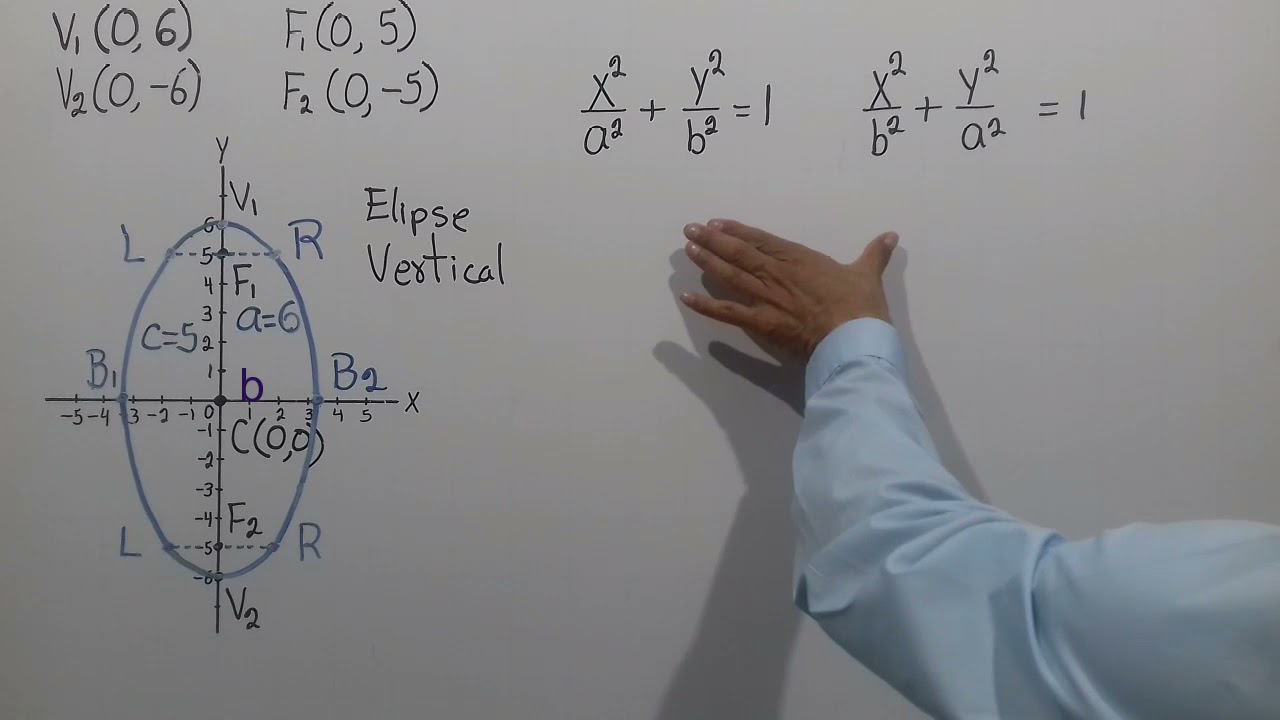 V₁(0, 6)
V₂(0, -6)
F₁(0, 5)
F₂(0, -5)
x²/a² + y²/b² = 1
x²/b² + y²/a² = 1
Elipse
Vertical
Y
V₁
6
L
R
5
F₁
4
3
a=6
c=5
2
B₁
1
b
B₂
X
-5 -4 -3 -2 -1 0 1 2 3 4 5
C(0,0)
-1
-2
-3
-4
F₂
L
-5
R
-6
V₂